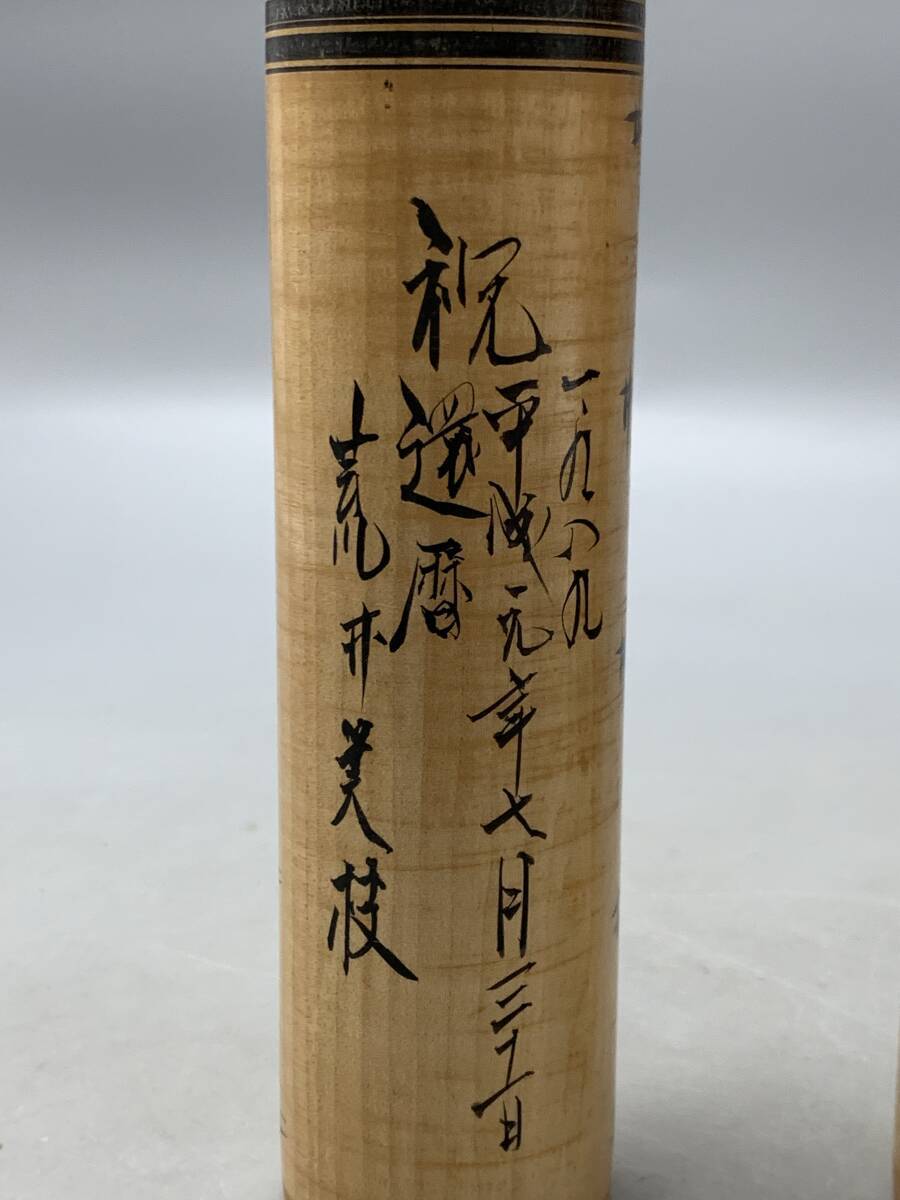 一九八九
平成元年七月三十一日
祝還暦
荒井美枝